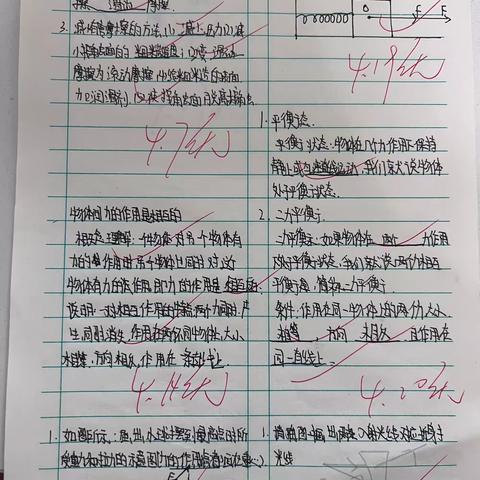 擦 摩擦
3. 减小摩擦的方法：(1) 减小压力 (2) 减
小接触面的粗糙程度；(3) 变滑动
摩擦为滚动摩擦
加润滑剂
4.7
物体间力的作用是相互的
一个物体对另个物体有
力的作用时另个物体也同时对这
物体有力的作用 即力的作用是相互的
说明：一对相互作用的特点 同时产
生同时消失，作用在两个不同物体，大小
相等，方向相反，作用在一条直线上
4.14
1. 如图所示，画出小球摆到最高点时所
受重力和拉力的示意图
F F
4.19
1. 平衡状态
平衡状态：物体在几个力作用下保持
静止或匀速直线运动，我们就说物体
处于平衡状态.
2. 二力平衡：
二力平衡：如果物体在 两个 力作用
处于平衡状态，我们就说两力相互
平衡，简称二力平衡
条件：作用在同一物体上的两个力，大小
相等，方向 相反，且作用在
同一直线上.
4.20
1. 请在图中画出 入射光线对应的
光线